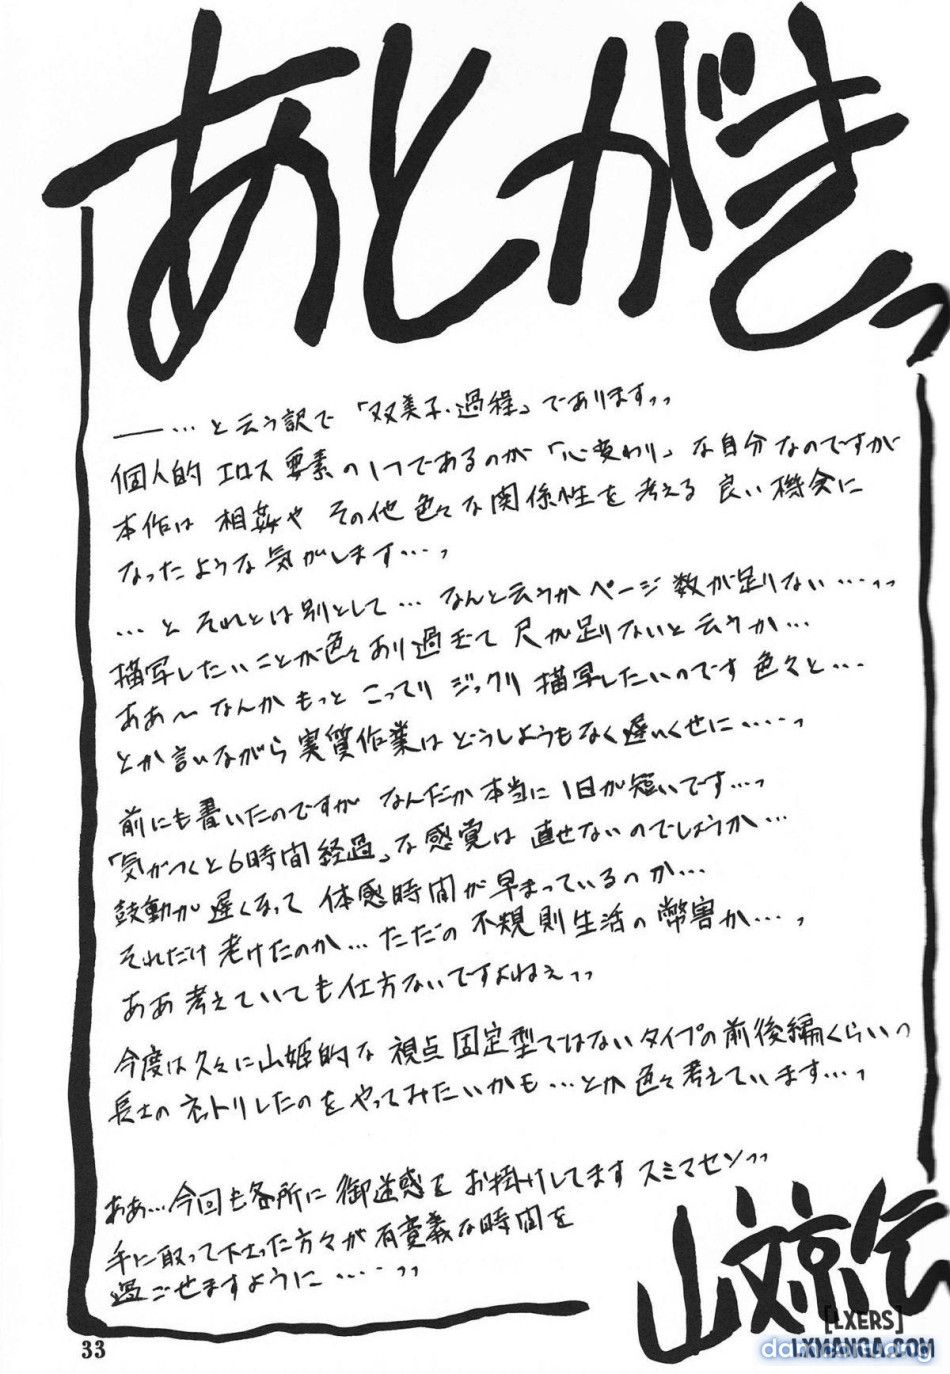 あとがきっ
―…と云う訳で「双美子・過程」でありますっっ
個人的エロス要素の1つであるのが「心変わり」な自分なのですが
本作は相姦やその他色々な関係性を考える良い機会に
なったような気がします…っ
…とそれとは別として…なんと云うかページ数が足りない…っっ
描写したいことが色々あり過ぎて尺が足りないと云うか…
ああ〜なんかもっとこってりジックリ描写したいのです色々と…
とか言いながら実質作業はどうしようもなく遅いくせに……っ
前にも書いたのですがなんだか本当に1日が短いです…っ
「気がつくと6時間経過」な感覚は直せないのでしょうか…
鼓動が遅くなって体感時間が早まっているのか…
それだけ老けたのか…ただの不規則生活の弊害か…っ
ああ考えていても仕方ないですよねぇっっ
今度は久々に山姫的な視点固定型ではないタイプの前後編くらいっ
長丈のネットリしたのをやってみたいかも…とか色々考えています…っ
ああ…今回も各所に御迷惑をお掛けしてますスミマセンっっ
手に取って下さった方々が有意義な時間を
過ごせますように……っっ
山文京伝
[LXERS]
LXMANGA.COM
33